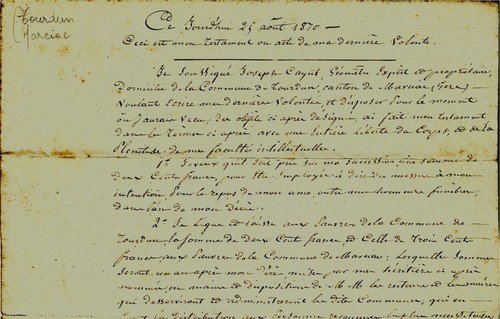 Tourdun
Marciac
Ce Jourd'hui 25 août 1870 —
Ceci est mon testament ou acte de ma dernière Volonté.
Je Soussigné Joseph Cazes, Géomètre Expert et propriétaire
domicilié de la Commune de Tourdun, canton de Marciac (Gers) —
Voulant Ecrire mes dernières Volontés, et disposer pour le moment
où j'aurais Vecu, des objets ci après designés, ai fait mon testament
dans les termes ci après, avec une Entière liberté du Corps, et de la
Plenitude de mes facultés intellectuelles.
1° Je veux qu'il soit pris sur ma succession une somme de
deux Cents francs, pour être Employée à dire des messes à mon
intention pour le repos de mon ame outre mes honneurs funèbres,
dans l'an de mon décès.
2° Je legue et laisse aux Pauvres de la Commune de
Tourdun, la somme de deux Cents francs et Celle de Trois Cents
francs aux Pauvres de la Commune de Marciac; lesquelles sommes
seront un an après mon décès mises par mes heritiers ci après
nommés, en mains et à disposition de M M les recteurs et les maires
qui desserviront et administreront les dites Communes, qui en
la distribution aux Personnes reconnues les plus